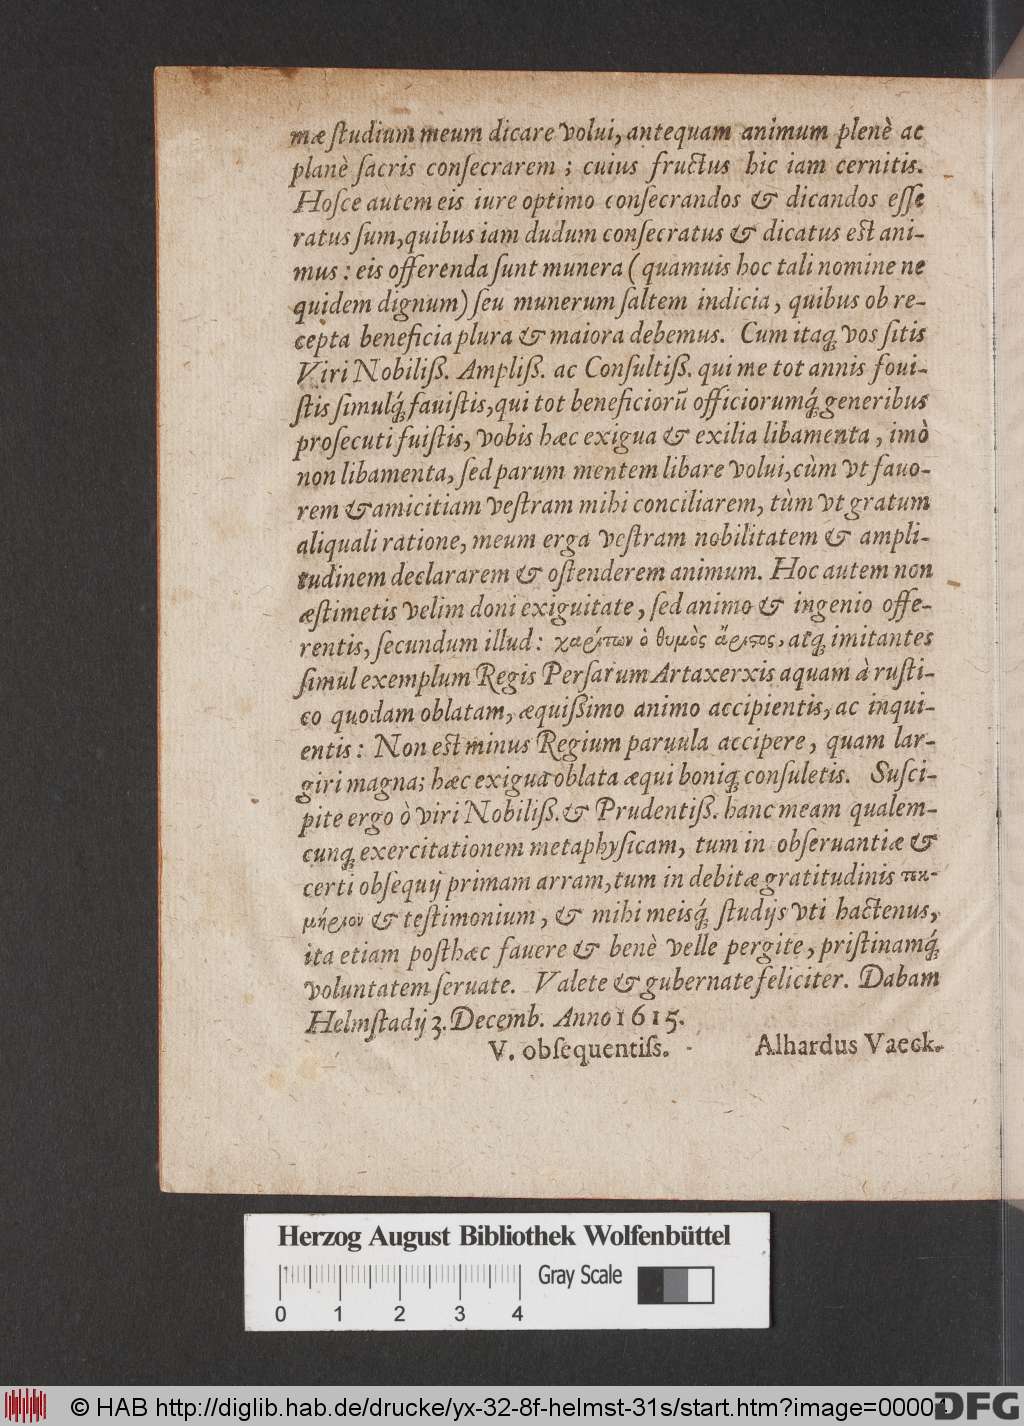 mæ ſtudium meum dicare volui, antequam animum plenè ac
planè ſacris conſecrarem ; cuius fructus hic iam cernitis.
Hoſce autem eis iure optimo conſecrandos & dicandos eſſe
ratus ſum, quibus iam dudum conſecratus & dicatus eſt ani-
mus : eis offerenda ſunt munera ( quamuis hoc tali nomine ne
quidem dignum) ſeu munerum ſaltem indicia, quibus ob re-
cepta beneficia plura & maiora debemus. Cum itaq́; vos ſitis
Viri Nobiliß. Ampliß. ac Conſultiß. qui me tot annis foui-
ſtis ſimulq́; fauiſtis, qui tot beneficiorũ officiorumq́; generibus
proſecuti fuiſtis, vobis hæc exigua & exilia libamenta, imò
non libamenta, ſed parum mentem libare volui, cùm vt fauo-
rem & amicitiam veſtram mihi conciliarem, tùm vt gratum
aliquali ratione, meum erga veſtram nobilitatem & ampli-
tudinem declararem & oſtenderem animum. Hoc autem non
æſtimetis velim doni exiguitate, ſed animo & ingenio offe-
rentis, ſecundum illud : χαρίτων ὁ θυμὸς ἄριστος, atq́; imitantes
ſimul exemplum Regis Perſarum Artaxerxis aquam à ruſti-
co quodam oblatam, æquißimo animo accipientis, ac inqui-
entis : Non eſt minus Regium paruula accipere, quam lar-
giri magna; hæc exigua oblata æqui boniq́; conſuletis. Suſci-
pite ergo ò viri Nobiliß. & Prudentiß. hanc meam qualem-
cunq́; exercitationem metaphyſicam, tum in obſeruantiæ &
certi obſequij primam arram, tum in debitæ gratitudinis τεκ-
μήριον & teſtimonium, & mihi meisq́; ſtudijs vti hactenus,
ita etiam poſthæc fauere & benè velle pergite, priſtinamq́;
voluntatem ſeruate. Valete & gubernate feliciter. Dabam
Helmſtadij 3. Decemb. Anno 1615.
V. obſequentiſs. Alhardus Vaeck.
Herzog August Bibliothek Wolfenbüttel
Gray Scale
0 1 2 3 4
© HAB http://diglib.hab.de/drucke/yx-32-8f-helmst-31s/start.htm?image=00004
DFG